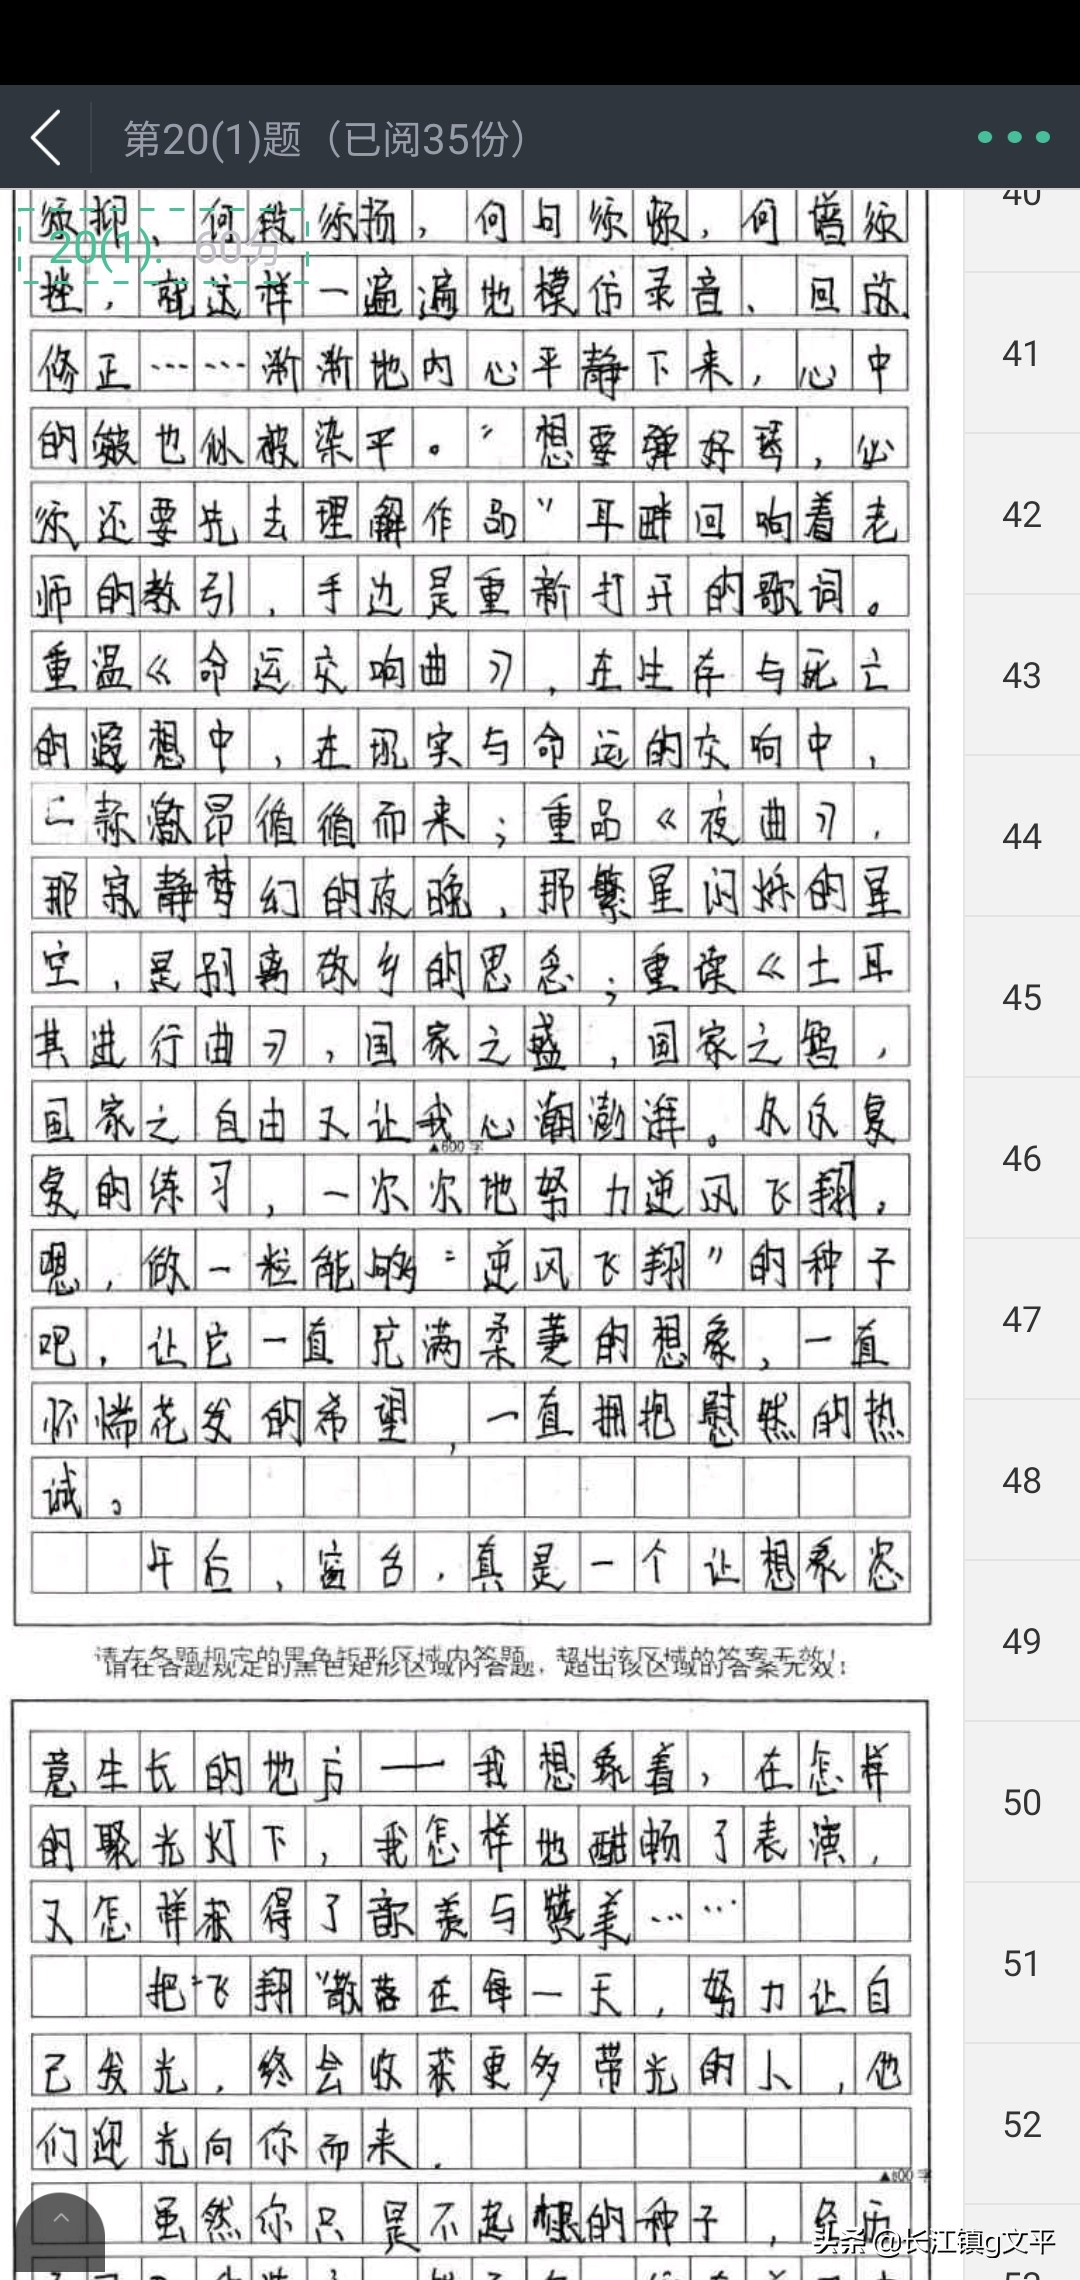 第20(1)题（已阅35份）
20(1). 60分
须抑、何段须扬，何句须顿，何谱须
挫，就这样一遍遍地模仿录音、回放
修正……渐渐地内心平静下来，心中
的皱也似被染平。“想要弹好琴，必
须还要先去理解作品”耳畔回响着老
师的教引，手边是重新打开的歌词。
重温《命运交响曲》，在生存与死亡
的遐想中，在现实与命运的交响中，
激昂循循而来；重品《夜曲》，
那寂静梦幻的夜晚，那繁星闪烁的星
空，是别离故乡的思念；重读《土耳
其进行曲》，国家之盛，国家之
国家之自由又让我心潮澎湃。反反复
▲600字
复的练习，一次次地努力逆风飞翔，
嗯，做一粒能够“逆风飞翔”的种子
吧，让它一直充满柔美的想象，一直
怀惴花发的希望，一直拥抱慰然的热
诚。
午后，窗台，真是一个让想象恣
请在各题规定的黑色矩形区域内答题，超出该区域的答案无效！
请在各题规定的黑色矩形区域内答题，超出该区域的答案无效！
意生长的地方——我想象着，在怎样
的聚光灯下，我怎样地酣畅了表演，
又怎样获得了歆羡与赞美……
把“飞翔”散落在每一天，努力让自
己发光，终会收获更多带光的人，他
们迎光向你而来.
▲800字
虽然你只是不起眼的种子，经历
40
41
42
43
44
45
46
47
48
49
50
51
52
头条 @长江镇g文平